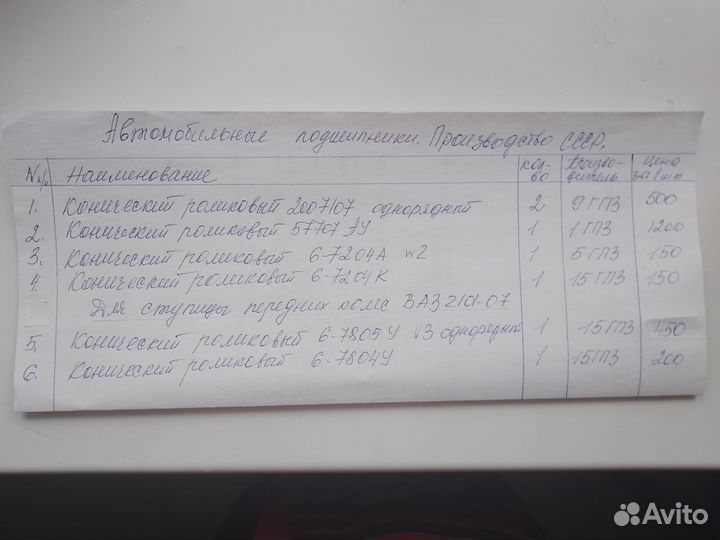 Автомобильные подшипники. Производство СССР.
N п/п Наименование кол-во Произво-дитель Цена за 1 шт
1. Конический роликовый 2007107 однорядный 2 9 ГПЗ 500
2. Конический роликовый 57707 У 1 1 ГПЗ 1200
3. Конический роликовый 6-7204А w2 1 5 ГПЗ 150
4. Конический роликовый 6-7204К 1 15 ГПЗ 150
Для ступицы передних колес ВАЗ 2101-07
5. Конический роликовый 6-7805У V3 однорядный 1 15 ГПЗ 450
6. Конический роликовый 6-7804У 1 15 ГПЗ 200
Avito